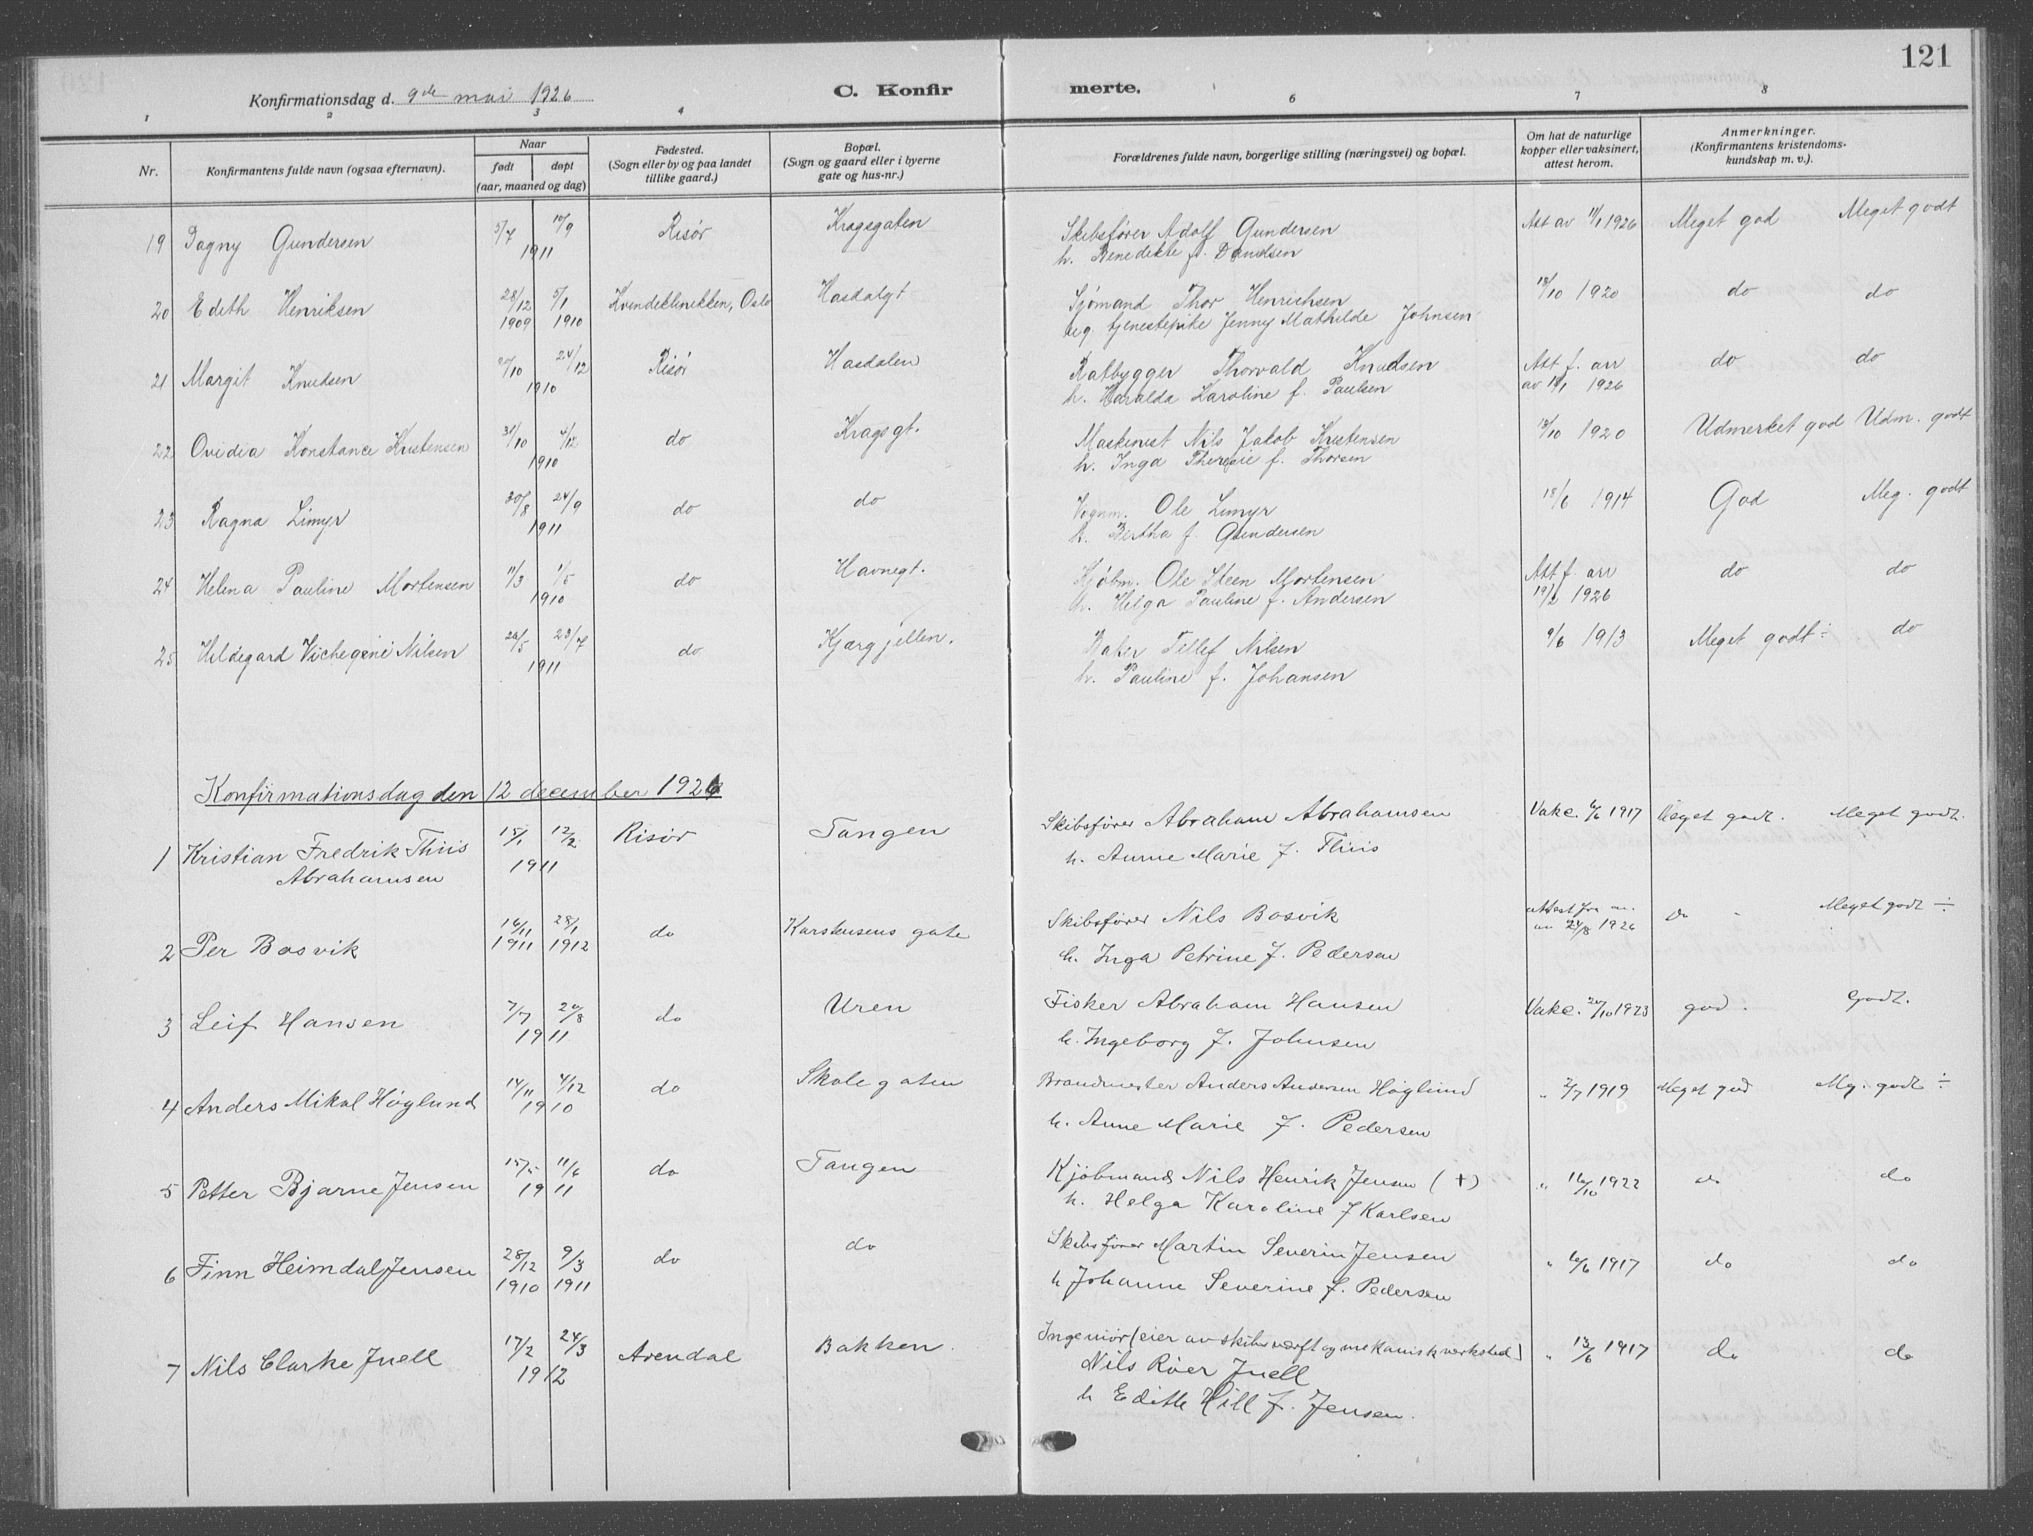 121
Konfirmationsdag d. 9de mai 1926
C. Konfir merte.
1 2 3 4 6 7 8
Nr.
Konfirmantens fulde navn (ogsaa efternavn).
Naar
født døpt
(aar, maaned og dag)
Fødested.
(Sogn eller by og paa landet
tillike gaard.)
Bopæl.
(Sogn og gaard eller i byerne
gate og hus-nr.)
Forældrenes fulde navn, borgerlige stilling (næringsvei) og bopæl.
Om hat de naturlige
kopper eller vaksinert,
attest herom.
Anmerkninger.
(Konfirmantens kristendoms-
kundskap m. v.).
19 Dagny Gundersen 5/7 10/9 1911 Risør Kragsgaten
Skibsfører Adolf Gundersen
h. Benedikte f. Danielsen
Att av 11/1 1926 Meget god Meget godt
20 Edith Henriksen 28/12 1909 5/1 1910 Kvindeklinikken, Oslo Hasdalgt
Sjømand Thor Henrichsen
ug. tjenestepike Jenny Mathilde Johnsen
18/10 1920 do do
21 Margit Knudsen 20/10 24/12 1910 Risør Hasdalen
Ratbygger Thorvald Knudsen
h. Haralda Karoline f. Paulsen
Att f. arr
av 18/1 1926 do do
22 Ovidia Konstance Kristensen 31/10 4/12 1910 do Kragsgt.
Maskinist Nils Jakob Kristensen
h. Inga Theresie f. Thorsen
18/10 1920 Udmerket god Udm. godt
23 Ragna Limyr 30/8 24/9 1911 do do
Vognm. Ole Limyr
h. Bertha f. Gundersen
18/6 1914 God Meg. godt
24 Helena Pauline Mortensen 11/3 1/5 1910 do Havnegt.
Kjøbm. Ole Steen Mortensen
h. Helga Pauline f. Andersen
Att f. arr
19/2 1926 do do
25 Hildegard Vichegene Nilsen 26/5 23/7 1911 do Kjærgjellen.
Baker Tellef Nilsen
h. Pauline f. Johansen
9/6 1913 Meget godt ÷ do
Konfirmationsdag den 12 december 1926
1 Kristian Fredrik Thiis 15/1 12/2 1911 Risør Tangen
Abrahamsen
Skibsfører Abraham Abrahamsen
h. Anne Marie f. Thiis
Vakc. 6/6 1917 Meget godt. Meget godt.
2 Per Bosvik 16/11 1911 28/1 1912 do Karstensens gate
Skibsfører Nils Bosvik
h. Inga Petrine f. Pedersen
attest fra
24/8 1926 do Meget godt ÷
3 Leif Hansen 7/7 20/8 1911 do Uren
Fisker Abraham Hansen
h. Ingeborg f. Johnsen
Vakc. 20/10 1923 god. Godt.
4 Anders Mikal Høglund 14/11 4/12 1910 do Skolegaten
Brandmester Anders Andersen Høglund
h. Anne Marie f. Pedersen
" 2/7 1919 Meget god Mg. godt ÷
5 Petter Bjarne Jensen 15/5 11/6 1911 do Tangen
Kjöbmand Nils Henrik Jensen (+)
h. Helga Karoline f Karlsen
" 16/10 1922 do do
6 Finn Heimdal Jensen 28/12 1910 9/3 1911 do do
Skibsfører Martin Severin Jensen
h Johanne Severine f. Pedersen
" 6/6 1917 do do
7 Nils Clarke Juell 17/2 24/3 1912 Arendal Bakken.
Ingeniör (eier av skibsværft og mekanisk verksted)
Nils Röer Juell
h Edith Hill f. Jensen.
" 13/6 1917 do do